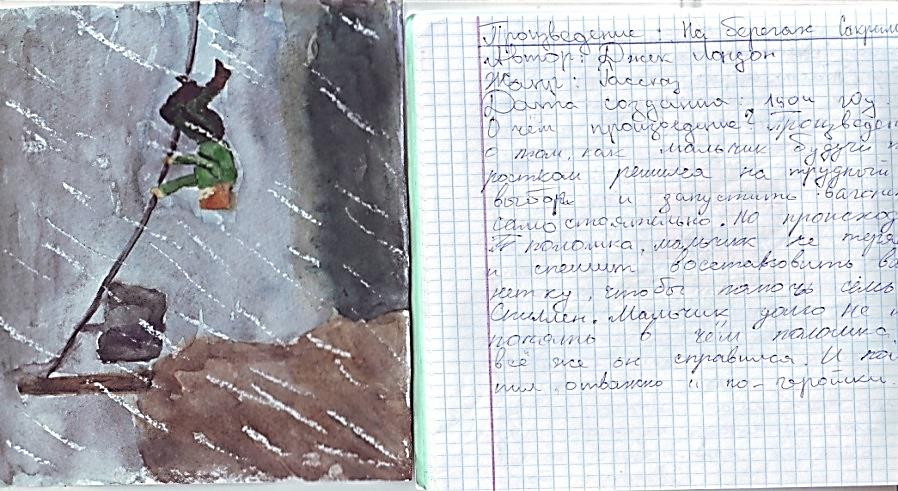 Произведение: На берегах Сакрам
Автор: Джек Лондон
Жанр: Рассказ
Дата создания: 1904 году.
О чём произведение? Произведен
о том, как мальчик будучи п
ростком решился на трудный
выбор и запустить вагоне
самостоятельно. Но происход
поломка, мальчик не теря
и спешит восстановить ва
нетку, чтобы помочь семь
Спиллен. Мальчик долго не м
понять в чём поломка,
всё же он справился. И пос
тил отважно и по-геройски.